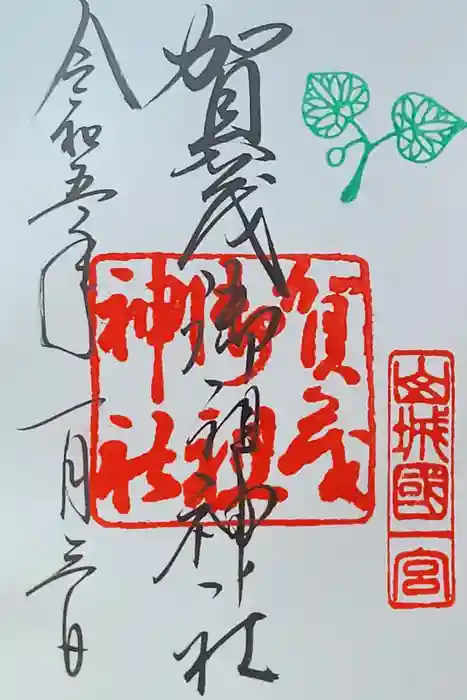 山城國一宮
賀茂御祖神社
賀茂御祖神社
令和五年 一月三日